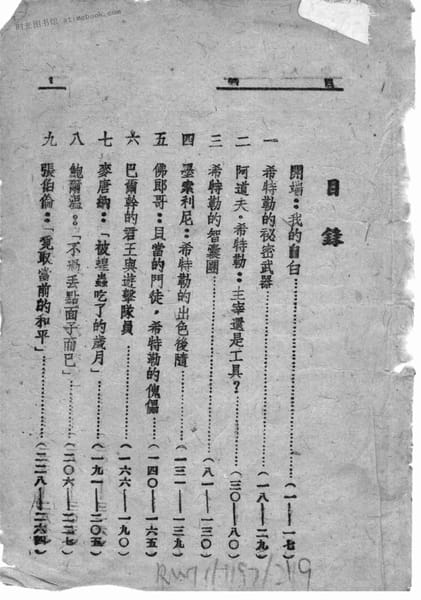 时光图书馆 atimebook.com
目錄
開端：我的自白……(一——一七)
一 希特勒的秘密武器……(一八——二九)
二 阿道夫·希特勒：主宰還是工具？……(三〇——八〇)
三 希特勒的智囊團……(八一——一三〇)
四 墨索利尼：希特勒的出色後隨……(一三一——一三九)
五 佛郎哥：貝當的門徒，希特勒的傀儡……(一四〇——一六五)
六 巴爾幹的君王與遊擊隊員……(一六六——一九〇)
七 麥唐納：「被蝗蟲吃了的歲月」……(一九一——二〇五)
八 鮑爾溫：「不過丟點面子而已」……(二〇六——二二七)
九 張伯倫：「覓取當前的和平」……(二二八——二六四)